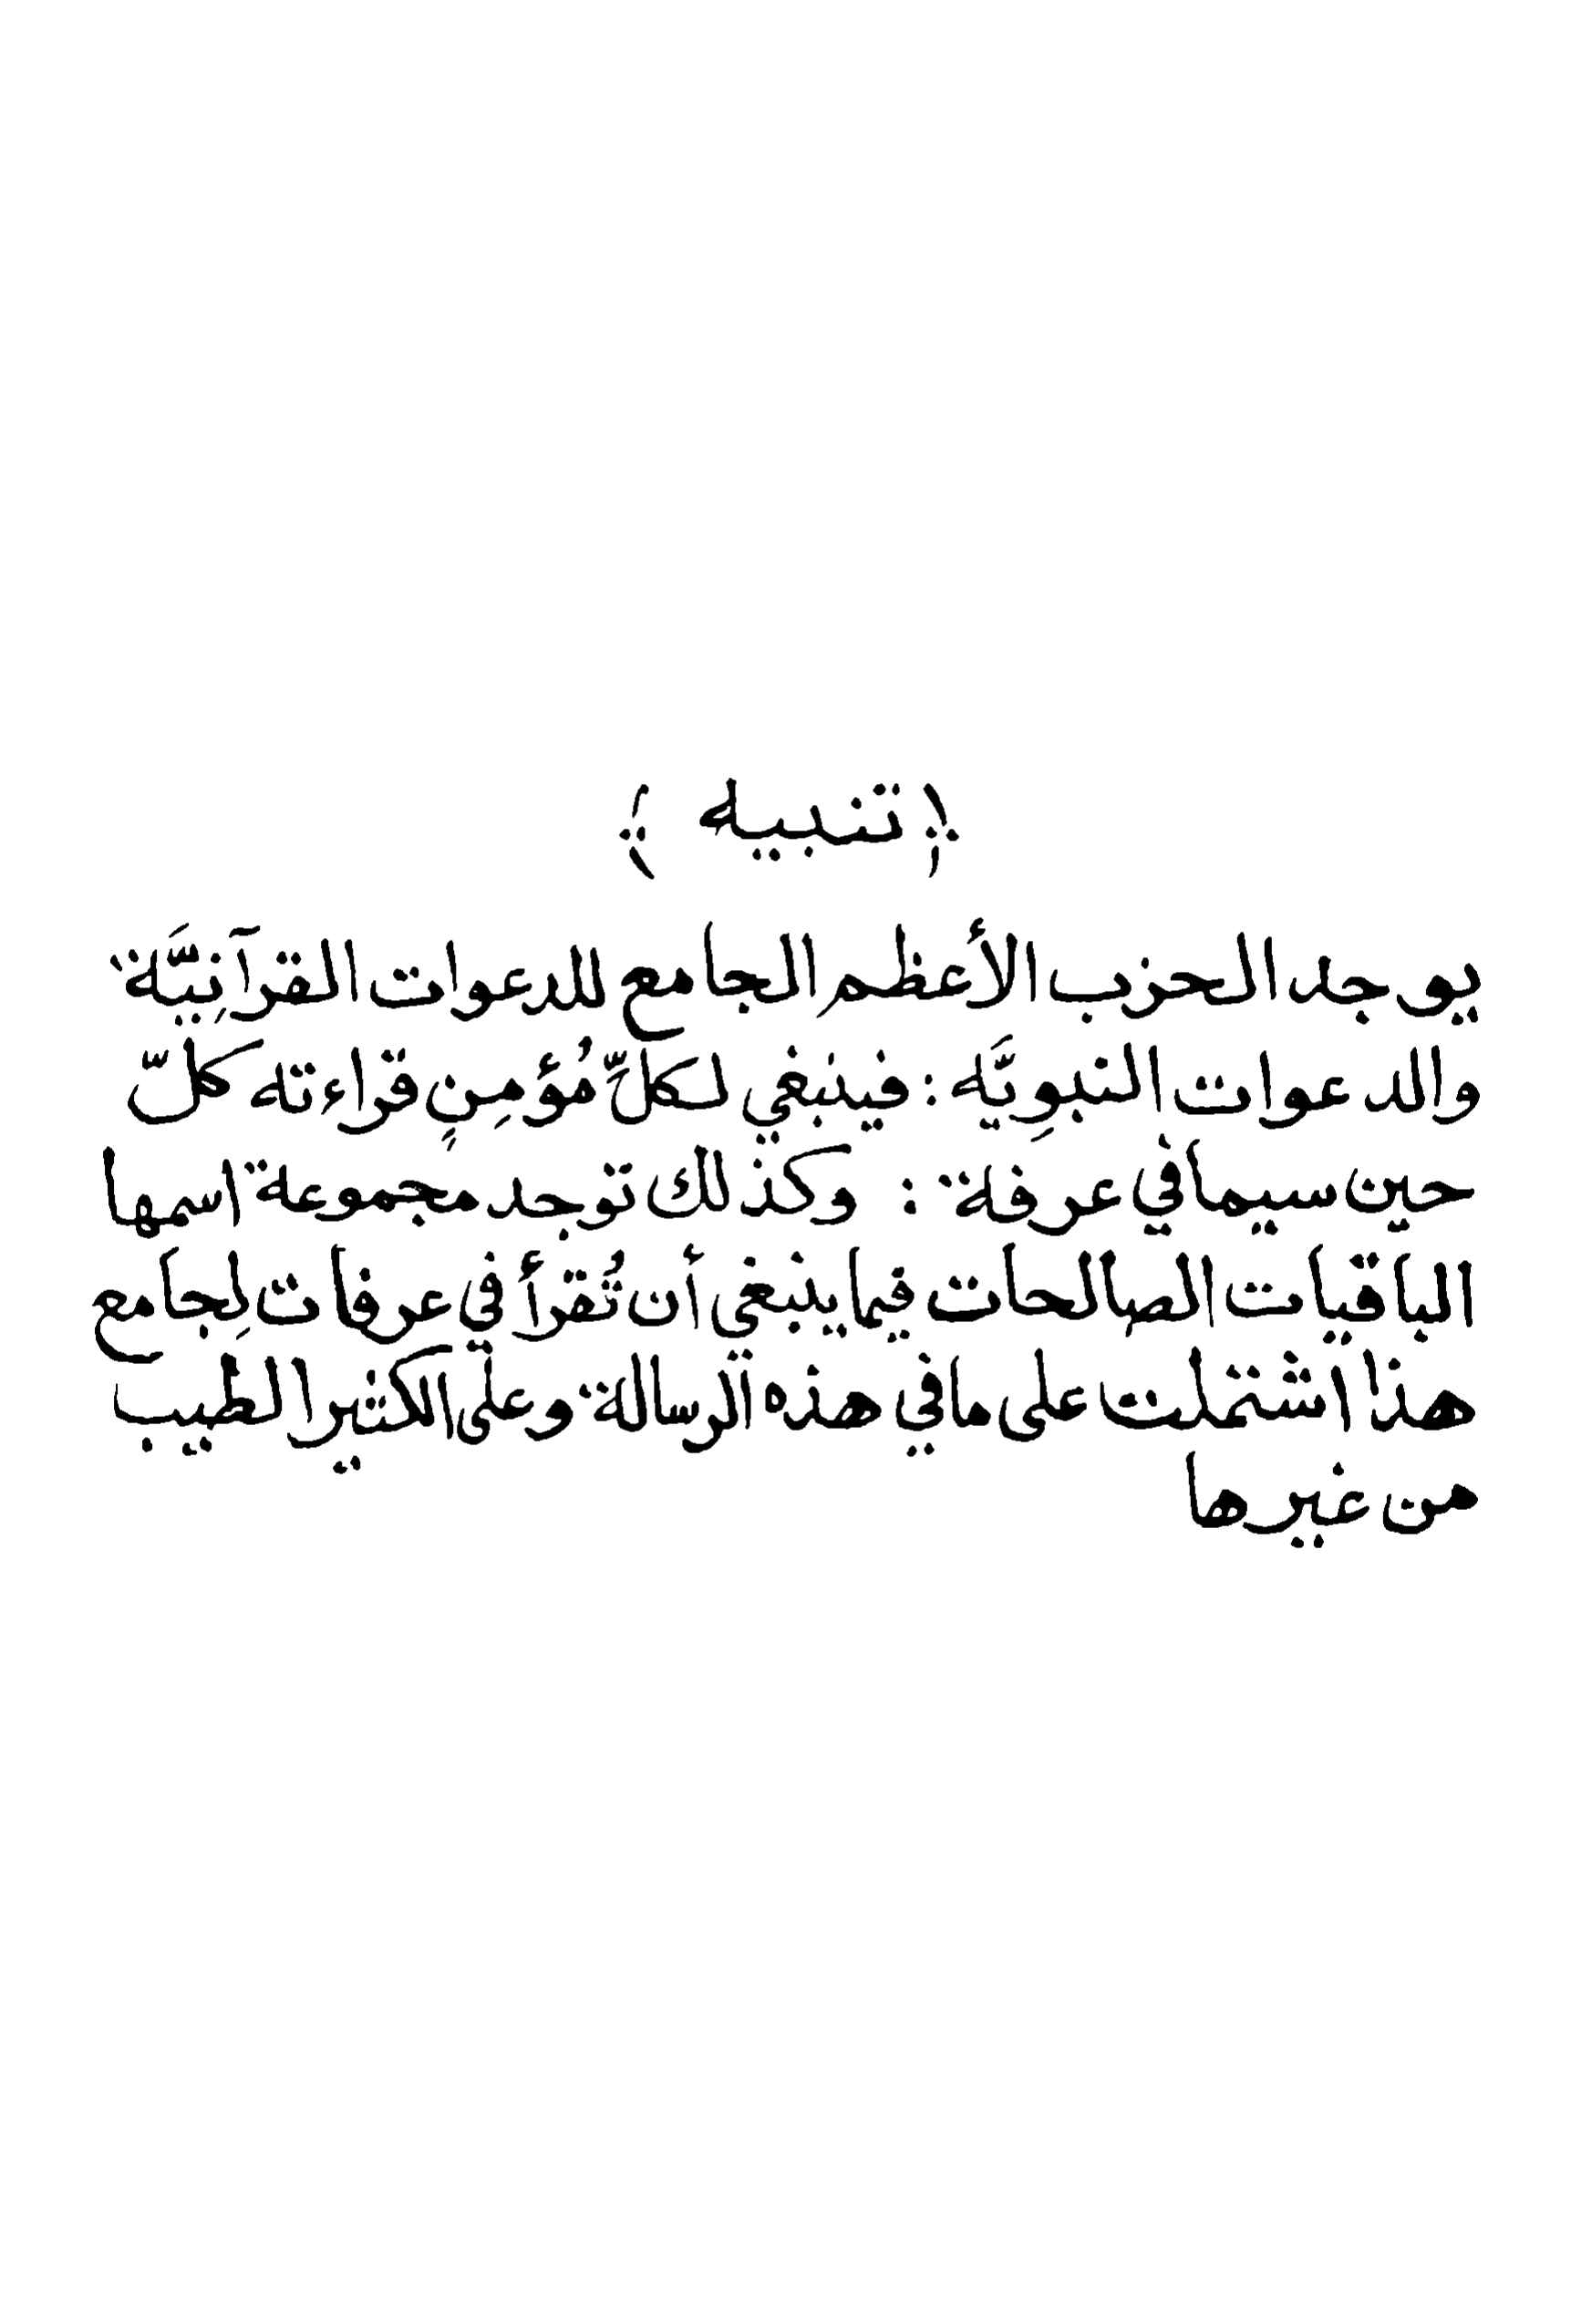 ﴿ تنبيه ﴾
يوجد الحزب الأعظم الجامع للدعوات القرآنِيَّة
والدعوات النبوِيَّه : فينبغي لكلِّ مُؤمِنٍ قراءته كلّ
حين سيما في عرفة : وكذلك توجد مجموعة اسمها
الباقيات الصالحات فيما ينبغي أن تُقرأ في عرفات لِجامع
هذا اشتملت على ما في هذه الرسالة وعلى الكثير الطيب
من غيرها